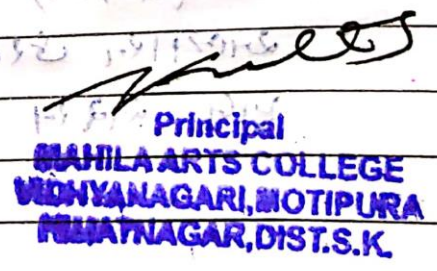 Principal
MAHILA ARTS COLLEGE
VIDHYANAGARI, MOTIPURA
HIMATNAGAR, DIST.S.K.